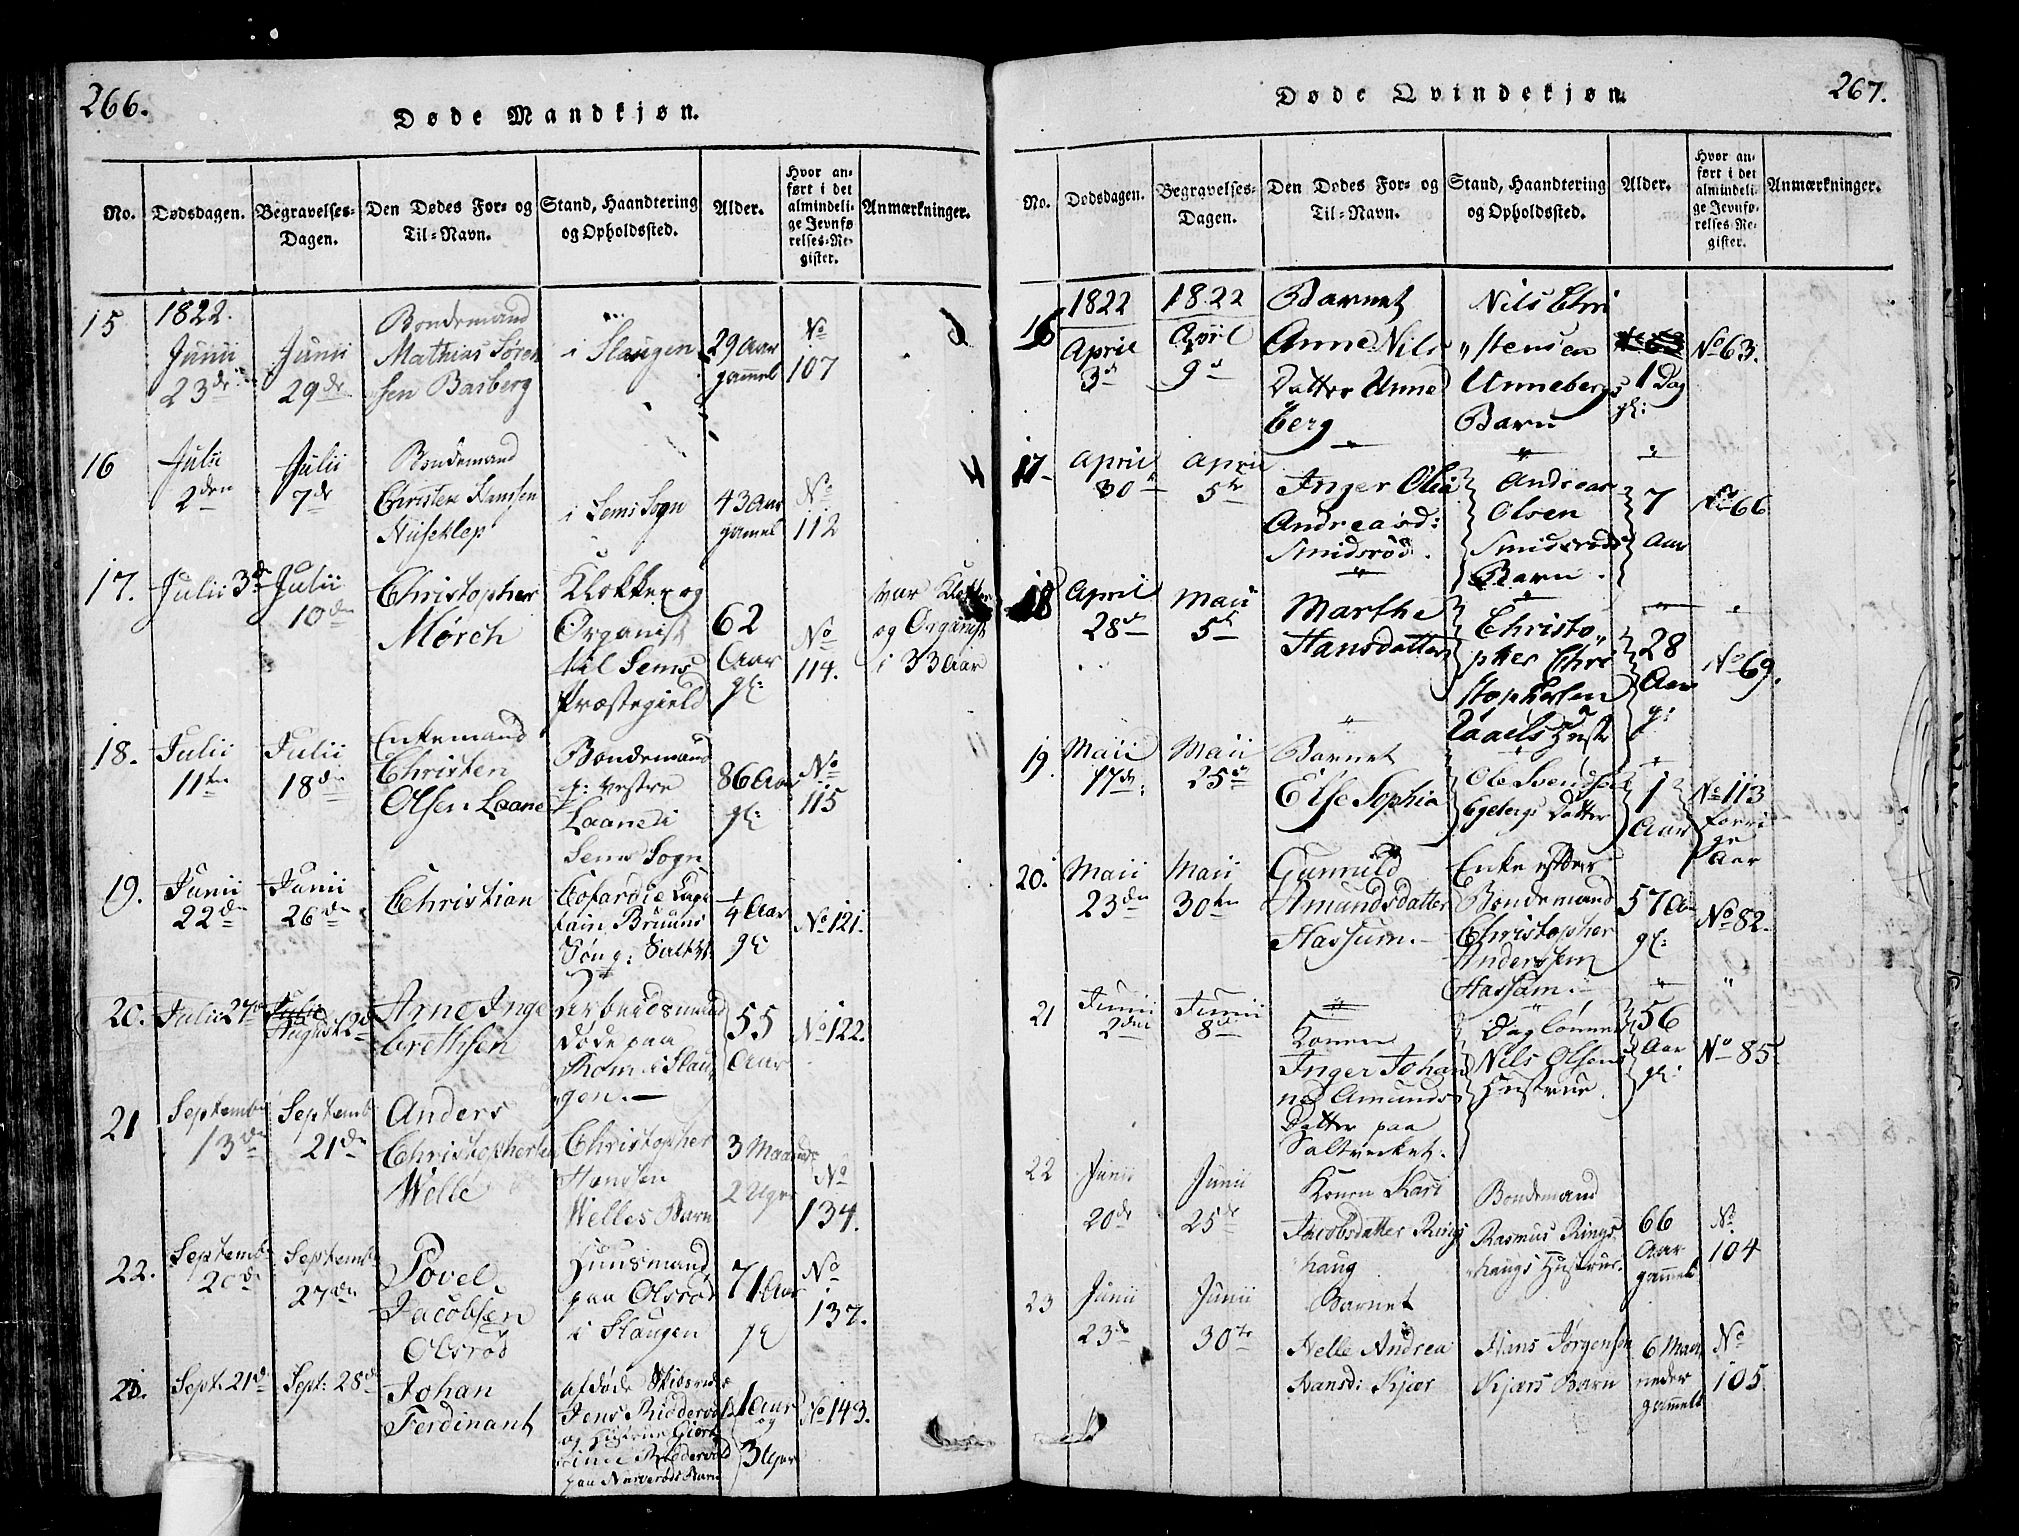 266.
Døde Mandkjøn.
No.
Dødsdagen.
Begravelses-
Dagen.
Den Dødes For- og
Til-Navn.
Stand, Haandtering
og Opholdssted.
Alder.
Hvor an-
ført i det
almindeli-
ge Jevnfø-
relses-Re-
gister.
Anmærkninger.
15
1822.
Junii
23de
Junii
29de
Bondemand
Mathias Søren
sen Basberg
i Slaugen
29 Aar
gammel
No
107
16
Julii
2den
Julii
7de
Bondemand
Christen Hansen
Huseklep
i Sems Sogn
43 Aar
gamel
No
112
17.
Julii 3de
Julii
10de
Christopher
Mørch
Klokker og
Organist
til Sems
Præstegield
62
Aar
gl:
No
114.
var Klokker
og Organist
i 33 Aar
18.
Julii
11te
Julii
18de
Enkemand
Christen
Olsen Laane
Bondemand
p: vestre
Laane i
Sems Sogn
86 Aar
gl:
No
115
19.
Junii
22de
Junii
26de
Christian
Cofardie Cap
tain Bruuns
Søn p: Saltv:
1/4 Aar
gl
No 121.
20.
Julii 27de
Julii
August 2de
Arne Inge
brethsen
Arbeidsmand
døde paa
Rom i Slau
gen.
55
Aar
No 122.
21
Septembr
13de
Septemb
21de
Anders
Christophersen
Welle
Christopher
Hansen
Welles Barn
3 Maaneder
2 Uger
No
134.
22.
Septembr
20de
Septembr
27de
Povel
Jacobsen
Olsrød
Huusmand
paa Olsrød
i Slaugen
71 Aar
gl
No
137.
23.
Sept. 21de
Sept: 28de
Johan
Ferdinant
afdøde
Jens Riddervold
og Hustrue
Riddervold
paa Narverøds Barn
1 Aar
og
3 Uger
No 143.
267.
Døde Qvindekjøn.
No.
Dødsdagen.
Begravelses-
Dagen.
Den Dødes For- og
Til-Navn.
Stand, Haandtering
og Opholdssted.
Alder.
Hvor an-
ført i det
almindeli-
ge Jevnfø-
relses-Re-
gister.
Anmærkninger.
16
1822
April
3de
1822
April
9de
Barnet
Anne Nils
Datter Unne
berg
Nils Chri
stensen
Unnebergs
Barn
1 Dag
gl:
No 63.
17
April
30te
April
5te
Inger Olia
Andreasd:
Smidsrød.
Andreas
Olsen
Smidsrøds
Barn.
7
Aar
No 66
18
April
28de
Maii
5te
Marthe
Hansdatter
Christo
pher Chri
stophersen
Raaels Hustr
28
Aar
g:
No 69.
19.
Maii
17de
Maii
25de
Barnet
Else Sophia
Ole Svendsen
Egebergs Datter
1
Aar
No 113
forri
ge
Aar
20.
Maii
23de
Maii
30te
Gunnild
Amundsdatter
Hassum.
Enke efter
Bondemand
Christopher
Anderssen
Hassum.
57 Aar
gl:
No 82.
21
Junii
2den
Junii
8de
Konen
Inger Johan
ne Amunds
Datter paa
Saltverket.
Daglønner
Nils Olsens
Hustrue.
56
Aar
gl:
No 85
22
Junii
20de
Junii
25de
Konen Kari
Jacobsdatter Rings
haug
Bondemand
Rasmus Rings
haugs Hustrue.
66
Aar
gammel
No
104
23
Junii
23de
Junii
30te
Barnet
Helle Andrea
Hansd: Kjær
Hans Jørgensen
Kjærs Barn
6 Maa
neder
gammel
No
105